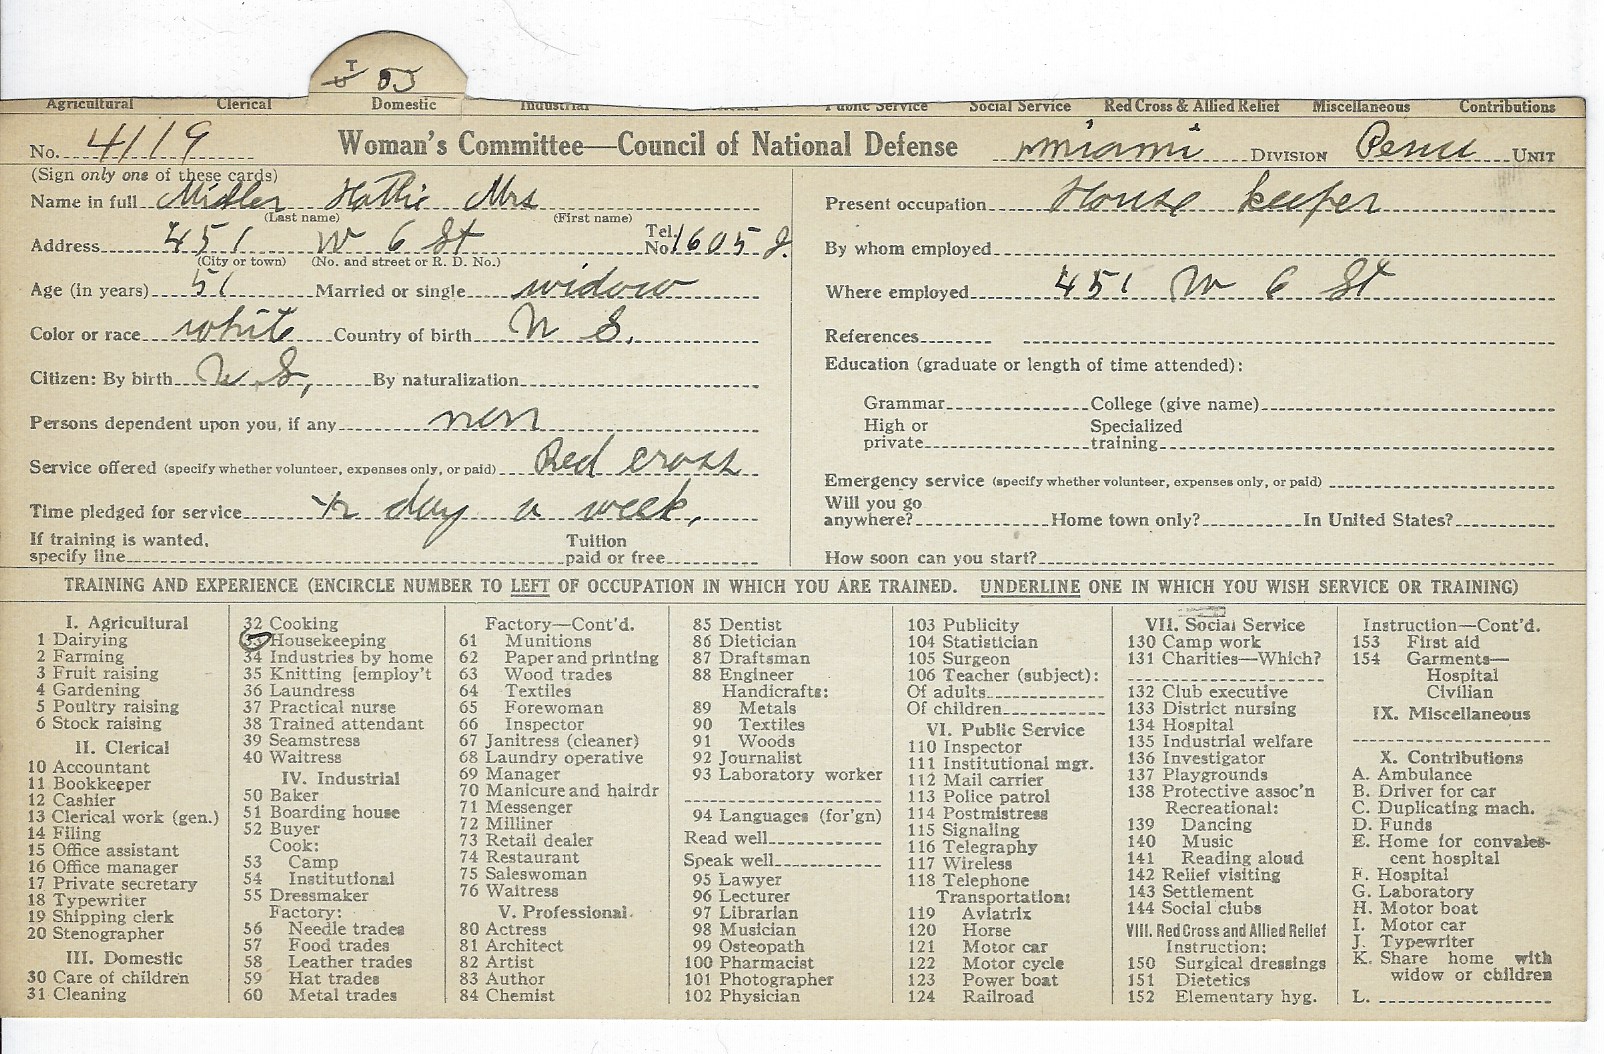 T
U 05
Agricultural Clerical Domestic Industrial Public Service Social Service Red Cross & Allied Relief Miscellaneous Contributions
No. 4119 Woman's Committee—Council of National Defense Miami DIVISION Peru UNIT
(Sign only one of these cards)
Name in full Midler Hattie Mrs
(Last name) (First name)
Address 451 W 6 St Tel. No. 1605 J.
(City or town) (No. and street or R. D. No.)
Age (in years) 51 Married or single widow
Color or race white Country of birth U S.
Citizen: By birth U. S, By naturalization
Persons dependent upon you, if any non
Service offered (specify whether volunteer, expenses only, or paid) Red cross
Time pledged for service 1/2 day a week,
If training is wanted, specify line Tuition paid or free
Present occupation House keeper
By whom employed
Where employed 451 W 6 St
References
Education (graduate or length of time attended):
Grammar College (give name)
High or private Specialized training
Emergency service (specify whether volunteer, expenses only, or paid)
Will you go anywhere? Home town only? In United States?
How soon can you start?
TRAINING AND EXPERIENCE (ENCIRCLE NUMBER TO LEFT OF OCCUPATION IN WHICH YOU ARE TRAINED. UNDERLINE ONE IN WHICH YOU WISH SERVICE OR TRAINING)
I. Agricultural
1 Dairying
2 Farming
3 Fruit raising
4 Gardening
5 Poultry raising
6 Stock raising
II. Clerical
10 Accountant
11 Bookkeeper
12 Cashier
13 Clerical work (gen.)
14 Filing
15 Office assistant
16 Office manager
17 Private secretary
18 Typewriter
19 Shipping clerk
20 Stenographer
III. Domestic
30 Care of children
31 Cleaning
32 Cooking
33 Housekeeping
34 Industries by home
35 Knitting [employ't
36 Laundress
37 Practical nurse
38 Trained attendant
39 Seamstress
40 Waitress
IV. Industrial
50 Baker
51 Boarding house
52 Buyer
Cook:
53 Camp
54 Institutional
55 Dressmaker
Factory:
56 Needle trades
57 Food trades
58 Leather trades
59 Hat trades
60 Metal trades
Factory—Cont'd.
61 Munitions
62 Paper and printing
63 Wood trades
64 Textiles
65 Forewoman
66 Inspector
67 Janitress (cleaner)
68 Laundry operative
69 Manager
70 Manicure and hairdr
71 Messenger
72 Milliner
73 Retail dealer
74 Restaurant
75 Saleswoman
76 Waitress
V. Professional
80 Actress
81 Architect
82 Artist
83 Author
84 Chemist
85 Dentist
86 Dietician
87 Draftsman
88 Engineer
Handicrafts:
89 Metals
90 Textiles
91 Woods
92 Journalist
93 Laboratory worker
94 Languages (for'gn)
Read well
Speak well
95 Lawyer
96 Lecturer
97 Librarian
98 Musician
99 Osteopath
100 Pharmacist
101 Photographer
102 Physician
103 Publicity
104 Statistician
105 Surgeon
106 Teacher (subject):
Of adults
Of children
VI. Public Service
110 Inspector
111 Institutional mgr.
112 Mail carrier
113 Police patrol
114 Postmistress
115 Signaling
116 Telegraphy
117 Wireless
118 Telephone
Transportation:
119 Aviatrix
120 Horse
121 Motor car
122 Motor cycle
123 Power boat
124 Railroad
VII. Social Service
130 Camp work
131 Charities—Which?
132 Club executive
133 District nursing
134 Hospital
135 Industrial welfare
136 Investigator
137 Playgrounds
138 Protective assoc'n
Recreational:
139 Dancing
140 Music
141 Reading aloud
142 Relief visiting
143 Settlement
144 Social clubs
VIII. Red Cross and Allied Relief
Instruction:
150 Surgical dressings
151 Dietetics
152 Elementary hyg.
Instruction—Cont'd.
153 First aid
154 Garments—
Hospital
Civilian
IX. Miscellaneous
X. Contributions
A. Ambulance
B. Driver for car
C. Duplicating mach.
D. Funds
E. Home for convalescent hospital
F. Hospital
G. Laboratory
H. Motor boat
I. Motor car
J. Typewriter
K. Share home with widow or children
L.